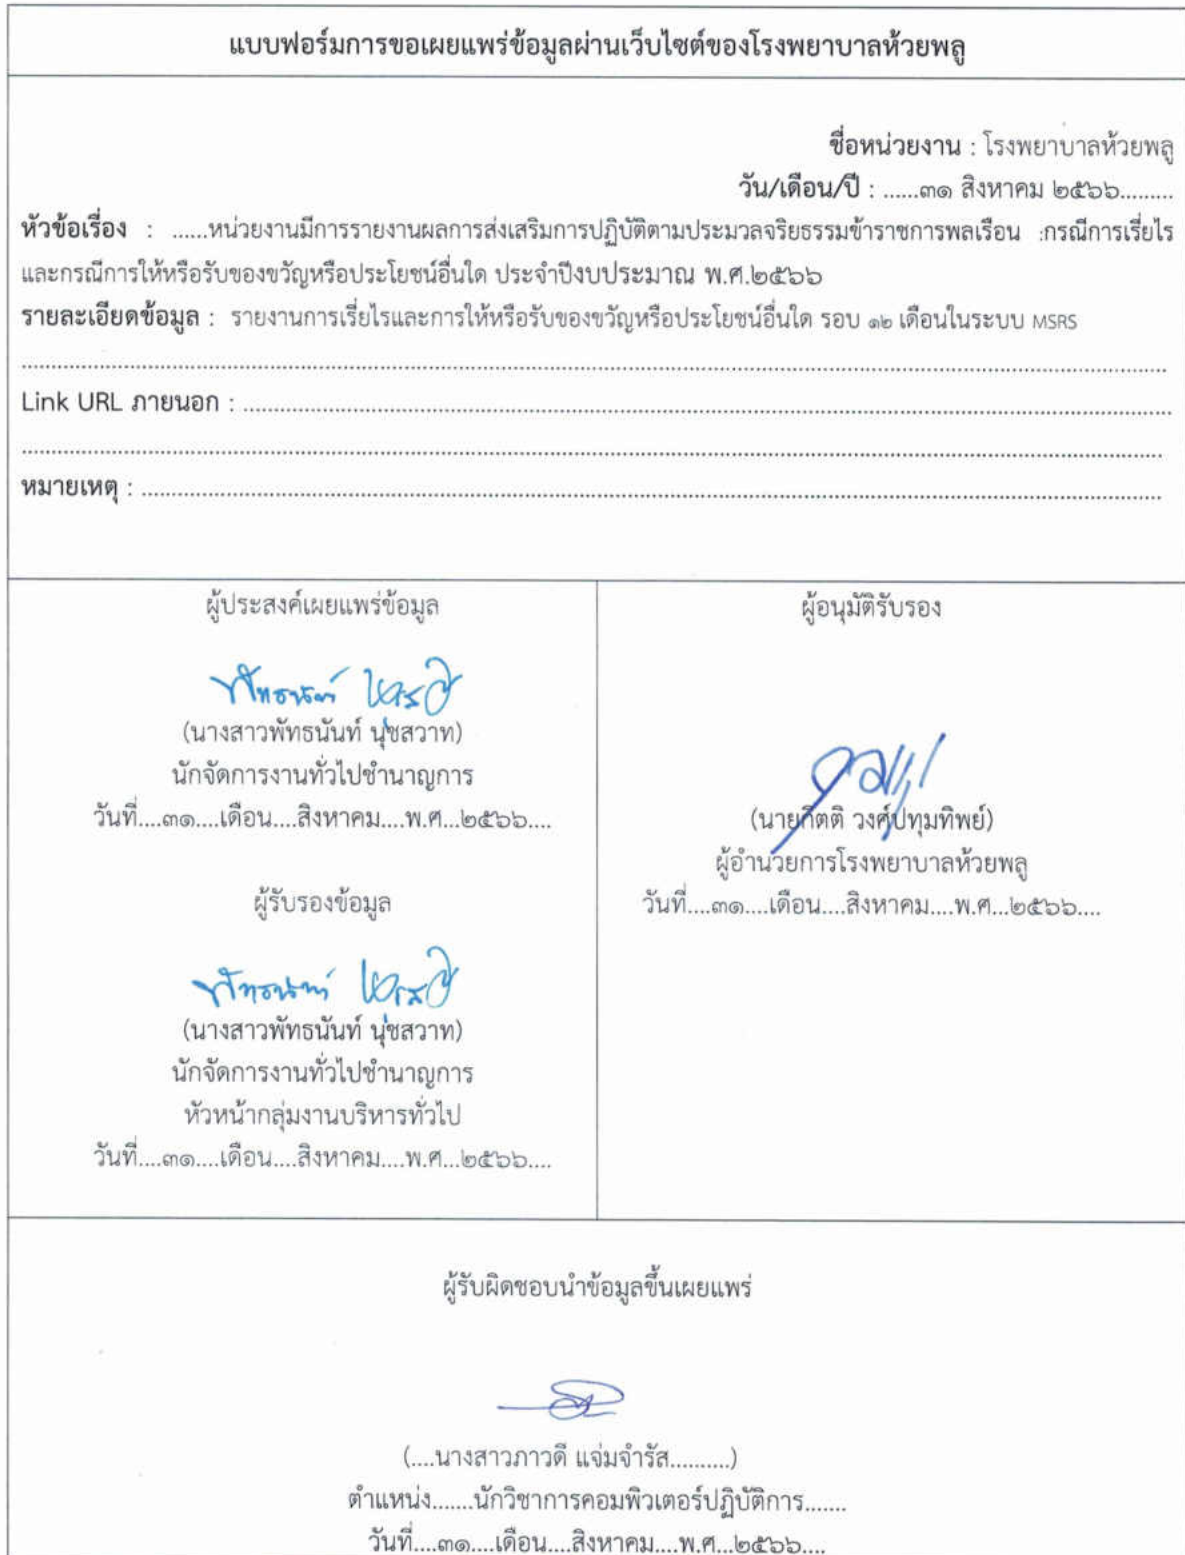 แบบฟอร์มการขอเผยแพร่ข้อมูลผ่านเว็บไซต์ของโรงพยาบาลห้วยพลู
ชื่อหน่วยงาน : โรงพยาบาลห้วยพลู
วัน/เดือน/ปี : ......๓๑ สิงหาคม ๒๕๖๖.........
หัวข้อเรื่อง : ......หน่วยงานมีการรายงานผลการส่งเสริมการปฏิบัติตามประมวลจริยธรรมข้าราชการพลเรือน :กรณีการเรี่ยไร
และกรณีการให้หรือรับของขวัญหรือประโยชน์อื่นใด ประจำปีงบประมาณ พ.ศ.๒๕๖๖
รายละเอียดข้อมูล : รายงานการเรี่ยไรและการให้หรือรับของขวัญหรือประโยชน์อื่นใด รอบ ๑๒ เดือนในระบบ MSRS
Link URL ภายนอก :
หมายเหตุ :
ผู้ประสงค์เผยแพร่ข้อมูล
พัทธนันท์
(นางสาวพัทธนันท์ นุชสวาท)
นักจัดการงานทั่วไปชำนาญการ
วันที่....๓๑....เดือน....สิงหาคม....พ.ศ...๒๕๖๖....
ผู้รับรองข้อมูล
พัทธนันท์
(นางสาวพัทธนันท์ นุชสวาท)
นักจัดการงานทั่วไปชำนาญการ
หัวหน้ากลุ่มงานบริหารทั่วไป
วันที่....๓๑....เดือน....สิงหาคม....พ.ศ...๒๕๖๖....
ผู้อนุมัติรับรอง
(นายกิตติ วงศ์ปทุมทิพย์)
ผู้อำนวยการโรงพยาบาลห้วยพลู
วันที่....๓๑....เดือน....สิงหาคม....พ.ศ...๒๕๖๖....
ผู้รับผิดชอบนำข้อมูลขึ้นเผยแพร่
(....นางสาวภาวดี แจ่มจำรัส..........)
ตำแหน่ง.......นักวิชาการคอมพิวเตอร์ปฏิบัติการ.......
วันที่....๓๑....เดือน....สิงหาคม....พ.ศ...๒๕๖๖....